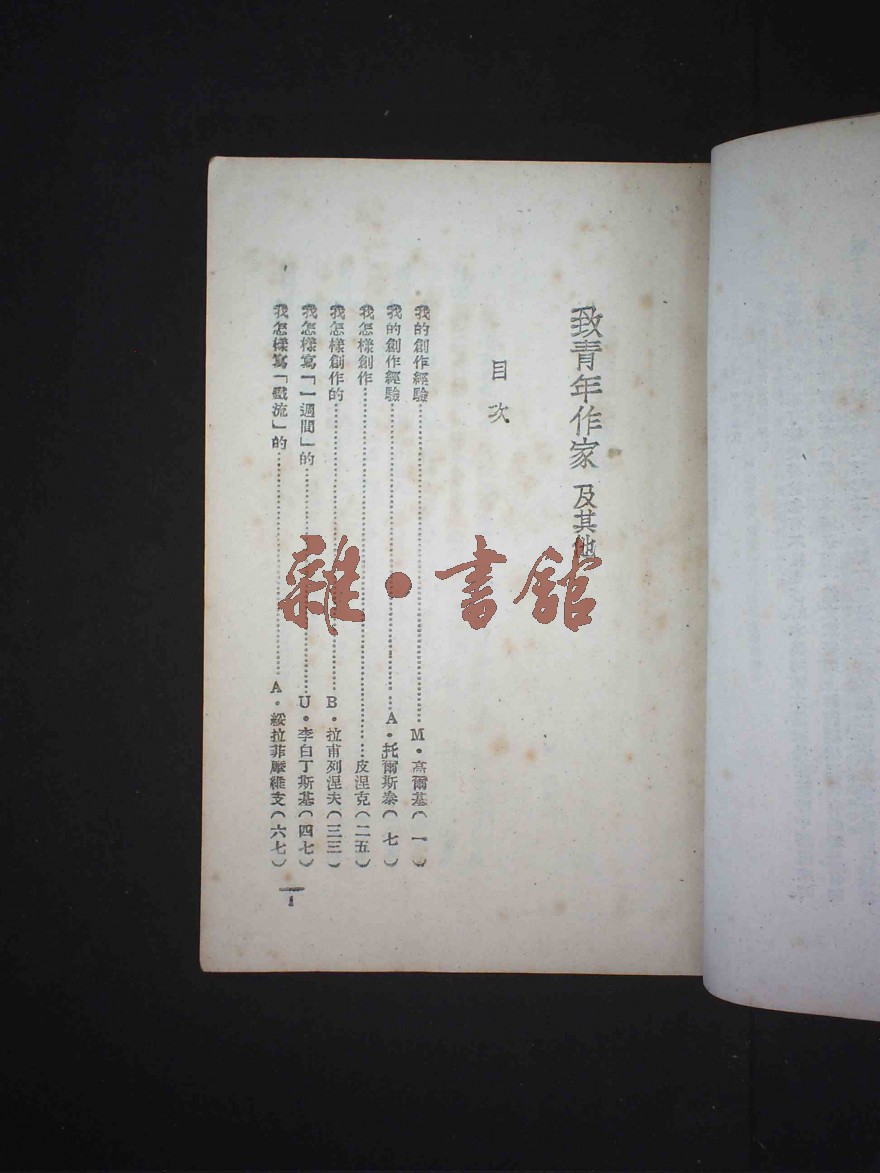 致青年作家 及其他
目次
我的創作經驗……M·高爾基(一)
我的創作經驗……A·托爾斯泰(七)
我怎樣創作……皮涅克(二五)
我怎樣創作的……B·拉甫列涅夫(三三)
我怎樣寫「一週間」的……U·李白丁斯基(四七)
我怎樣寫「鐵流」的……A·綏拉菲摩維支(六七)
1
雜·書館